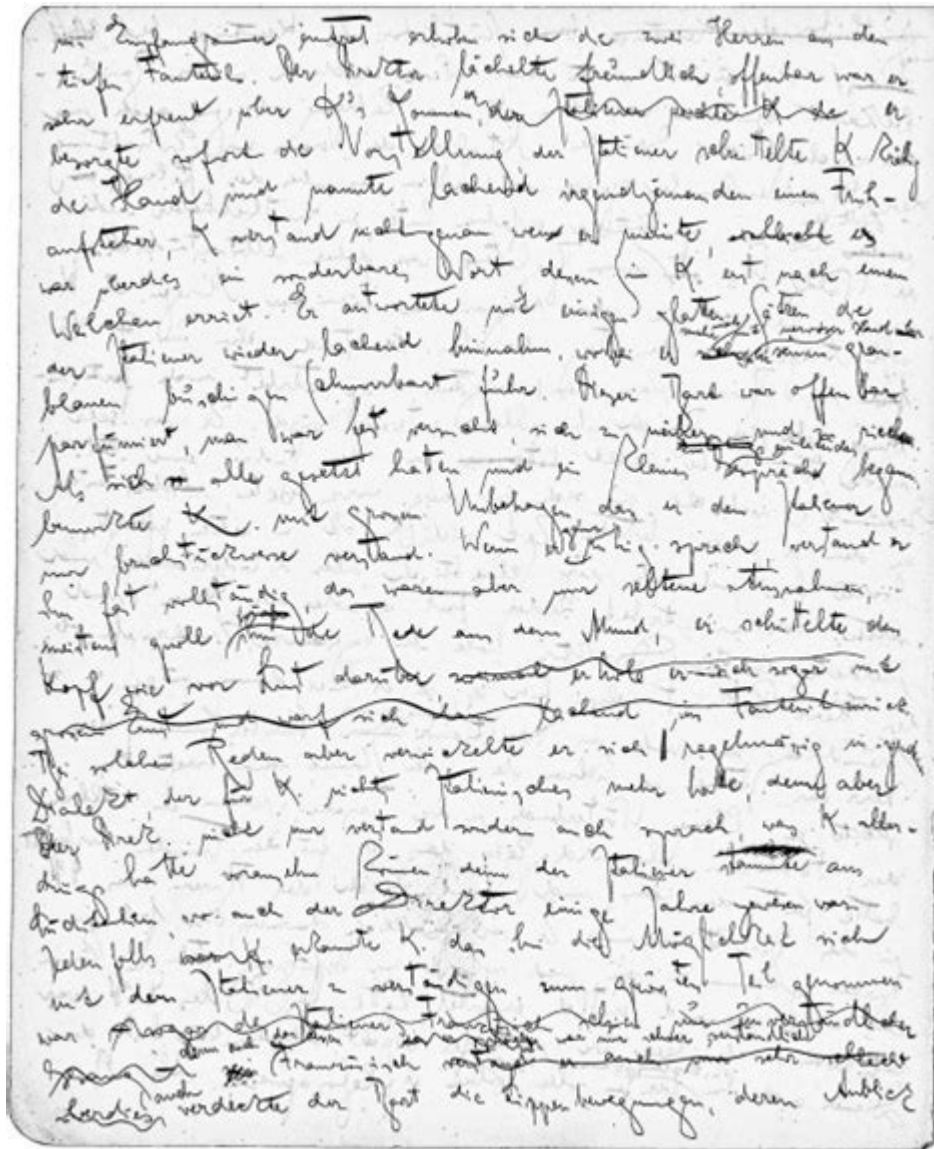 ins Empfangszimmer eintrat erhoben sich die zwei Herren aus den
tiefen Fauteuils. Der Direktor lächelte freundlich, offenbar war er
sehr erfreut über K's Kommen, der Italiener K er
besorgte sofort die Vorstellung der Italiener schüttelte K. kräftig
die Hand und nannte lachend irgendjemanden einen Früh-
aufsteher, K verstand nicht genau wen er meinte, es
war überdies ein sonderbares Wort dessen Sinn K. erst nach einem
Weilchen erriet. Er antwortete mit einigen glatten Sätzen die
mit nervöser Hand über
der Italiener wieder lachend hinnahm, wobei er seinen grau-
blauen buschigen Schnurrbart fuhr. Dieser Bart war offenbar
parfümiert, man war fast versucht, sich zu nähern und zu riechen.
Als sich alle gesetzt hatten und ein kleines einleitendes Gespräch begann,
bemerkte K. mit grossem Unbehagen dass er den Italiener
nur bruchstückweise verstand. Wenn er ganz ruhig sprach verstand er
ihn fast vollständig, das waren aber nur seltene Ausnahmen,
meistens quoll ihm die Rede aus dem Mund, er schüttelte den
Kopf wie vor Lust darüber erholte er sich sogar mit
und warf sich dann lachend ins Fauteuil zurück
Bei solchen Reden aber verwickelte er sich regelmässig in irgend
Dialekt der für K. nichts Italienisches mehr hatte, den aber
der Direk. nicht nur verstand sondern auch sprach, was K. aller-
dings hätte voraussehn können, denn der Italiener stammte aus
Süditalien, wo auch der Direktor einige Jahre gewesen war.
Jedenfalls erkannte K. dass ihm die Möglichkeit sich
mit dem Italiener zu verständigen zum grössten Teil genommen
war
denn auch dessen war nur schwer verständlich
Französisch er auch nur sehr schlecht
auch verdeckte der Bart die Lippenbewegungen, deren Anblick